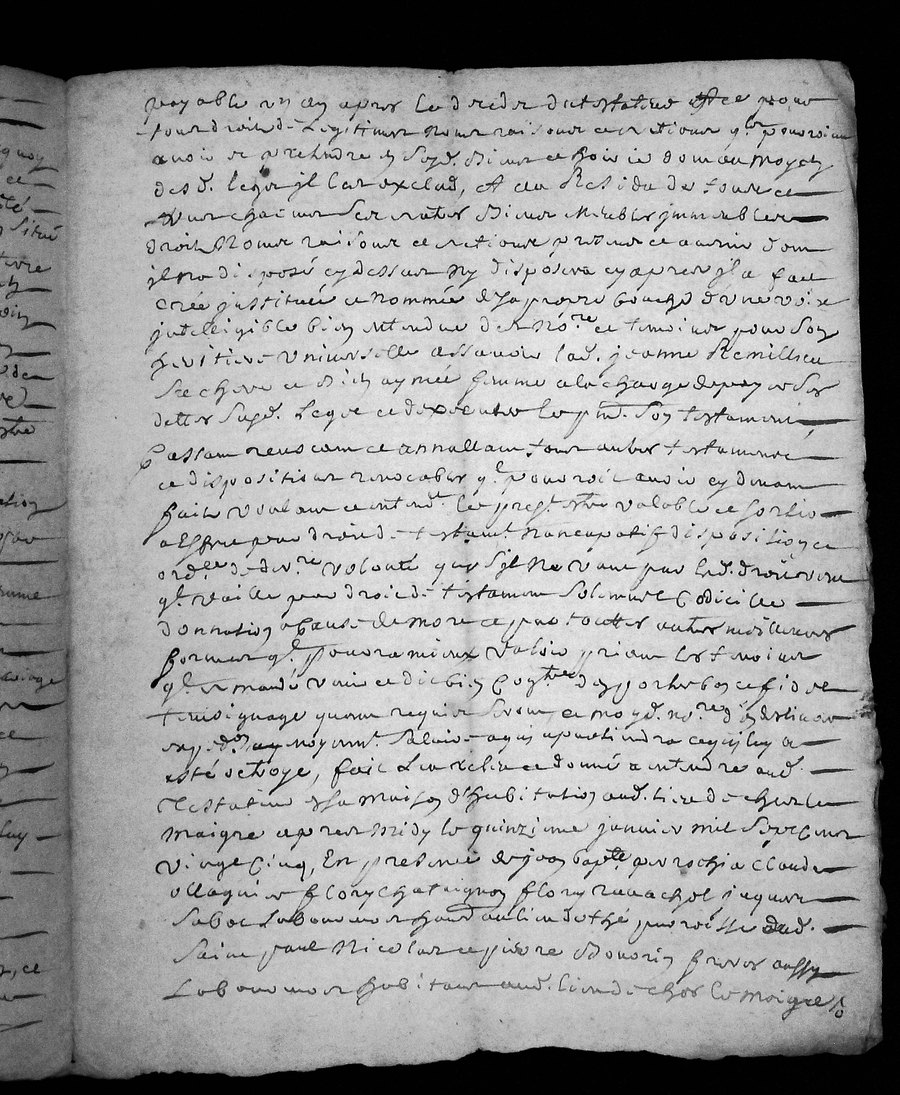 payable un an apres le deceds du testateur et ce pour
tous droits de Legitime Noms raisons et actions ql pouroient
avoir et pretendre en Sesd. Biens et hoirie donc au moyen
desd. legat jl les exclud, Et au Residu de tous et
Uns chacuns Ses autres Biens Meubles jmmeubles
droits Noms raisons et actions presens et avenir dont
jl na disposé cy dessus ny disposera cy apres jl a fait
créé jnstitué et nommée de sa propre bouche d'une voix
jntelligible bien entendue de No.re et temoins pour Son
heritiere Universelle assavoir lad. jeanne Remillieu
Sa chere et Bien aymée femme a la charge de payer Ses
dettes Sesd. Legat et d'executer le pnt. Son testament
Cassant revocant et annullant tous autres testaments
et dispositions revocables ql pouroit avoir cy devant
faits voulant et entend. le present estre valable et sortir
a Effect par droit de testamt. Nuncupatif disposition et
ord.ce de der.re volonté que Sjl Ne Vaut par led. droit veut
ql vaille par droit de testament Solemnel Codicille
donnation a Cause de mort et par touttes autres meilleures
formes ql poura mieux valoir priant les temoins
ql a mandé voir et bien en porter bon et fidel
temoignage quand requis Seront et moyd. no.re d'en delivrer
exp.don moyennt. Salaire a qui apartiendra ce qui luy a
esté octroyé, fait Leu relu et donné a entendre aud.
Testateur dsa maison d'habitation aud. lieu de cherle
maigre apres Midy le quinzieme janvier mil Sept Cent
Vingt Cinq, En presence de jean bapte. perrochia Claude
ollagnier flory Chataignon flory ravachol jaques
Saboc Laboureur aud. lieu du thé parroisse dud.
Saint paul Nicolas et pierre Bonorin freres aussy
Laboureurs habitans aud. lieu de cher le maigre